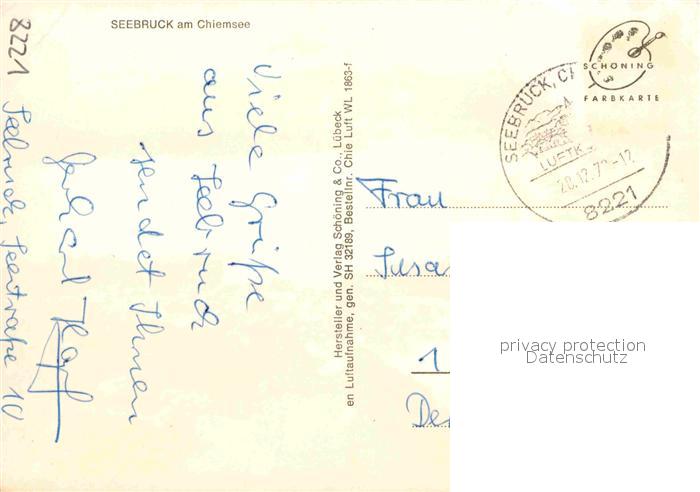 SEEBRUCK am Chiemsee
SCHÖNING
FARBKARTE
SEEBRUCK, CH
LUFTK
28.12.7 -12
8221
Viele Grüße
aus Seebruck
sendet Ihnen
Gerhard
8221 Seebruck, Seestraße 10
Hersteller und Verlag Schöning & Co., Lübeck
en Luftaufnahme, gen. SH 32189, Bestellnr. Chie Luft WL 1863-f
Frau
Susa
1
De
privacy protection
Datenschutz